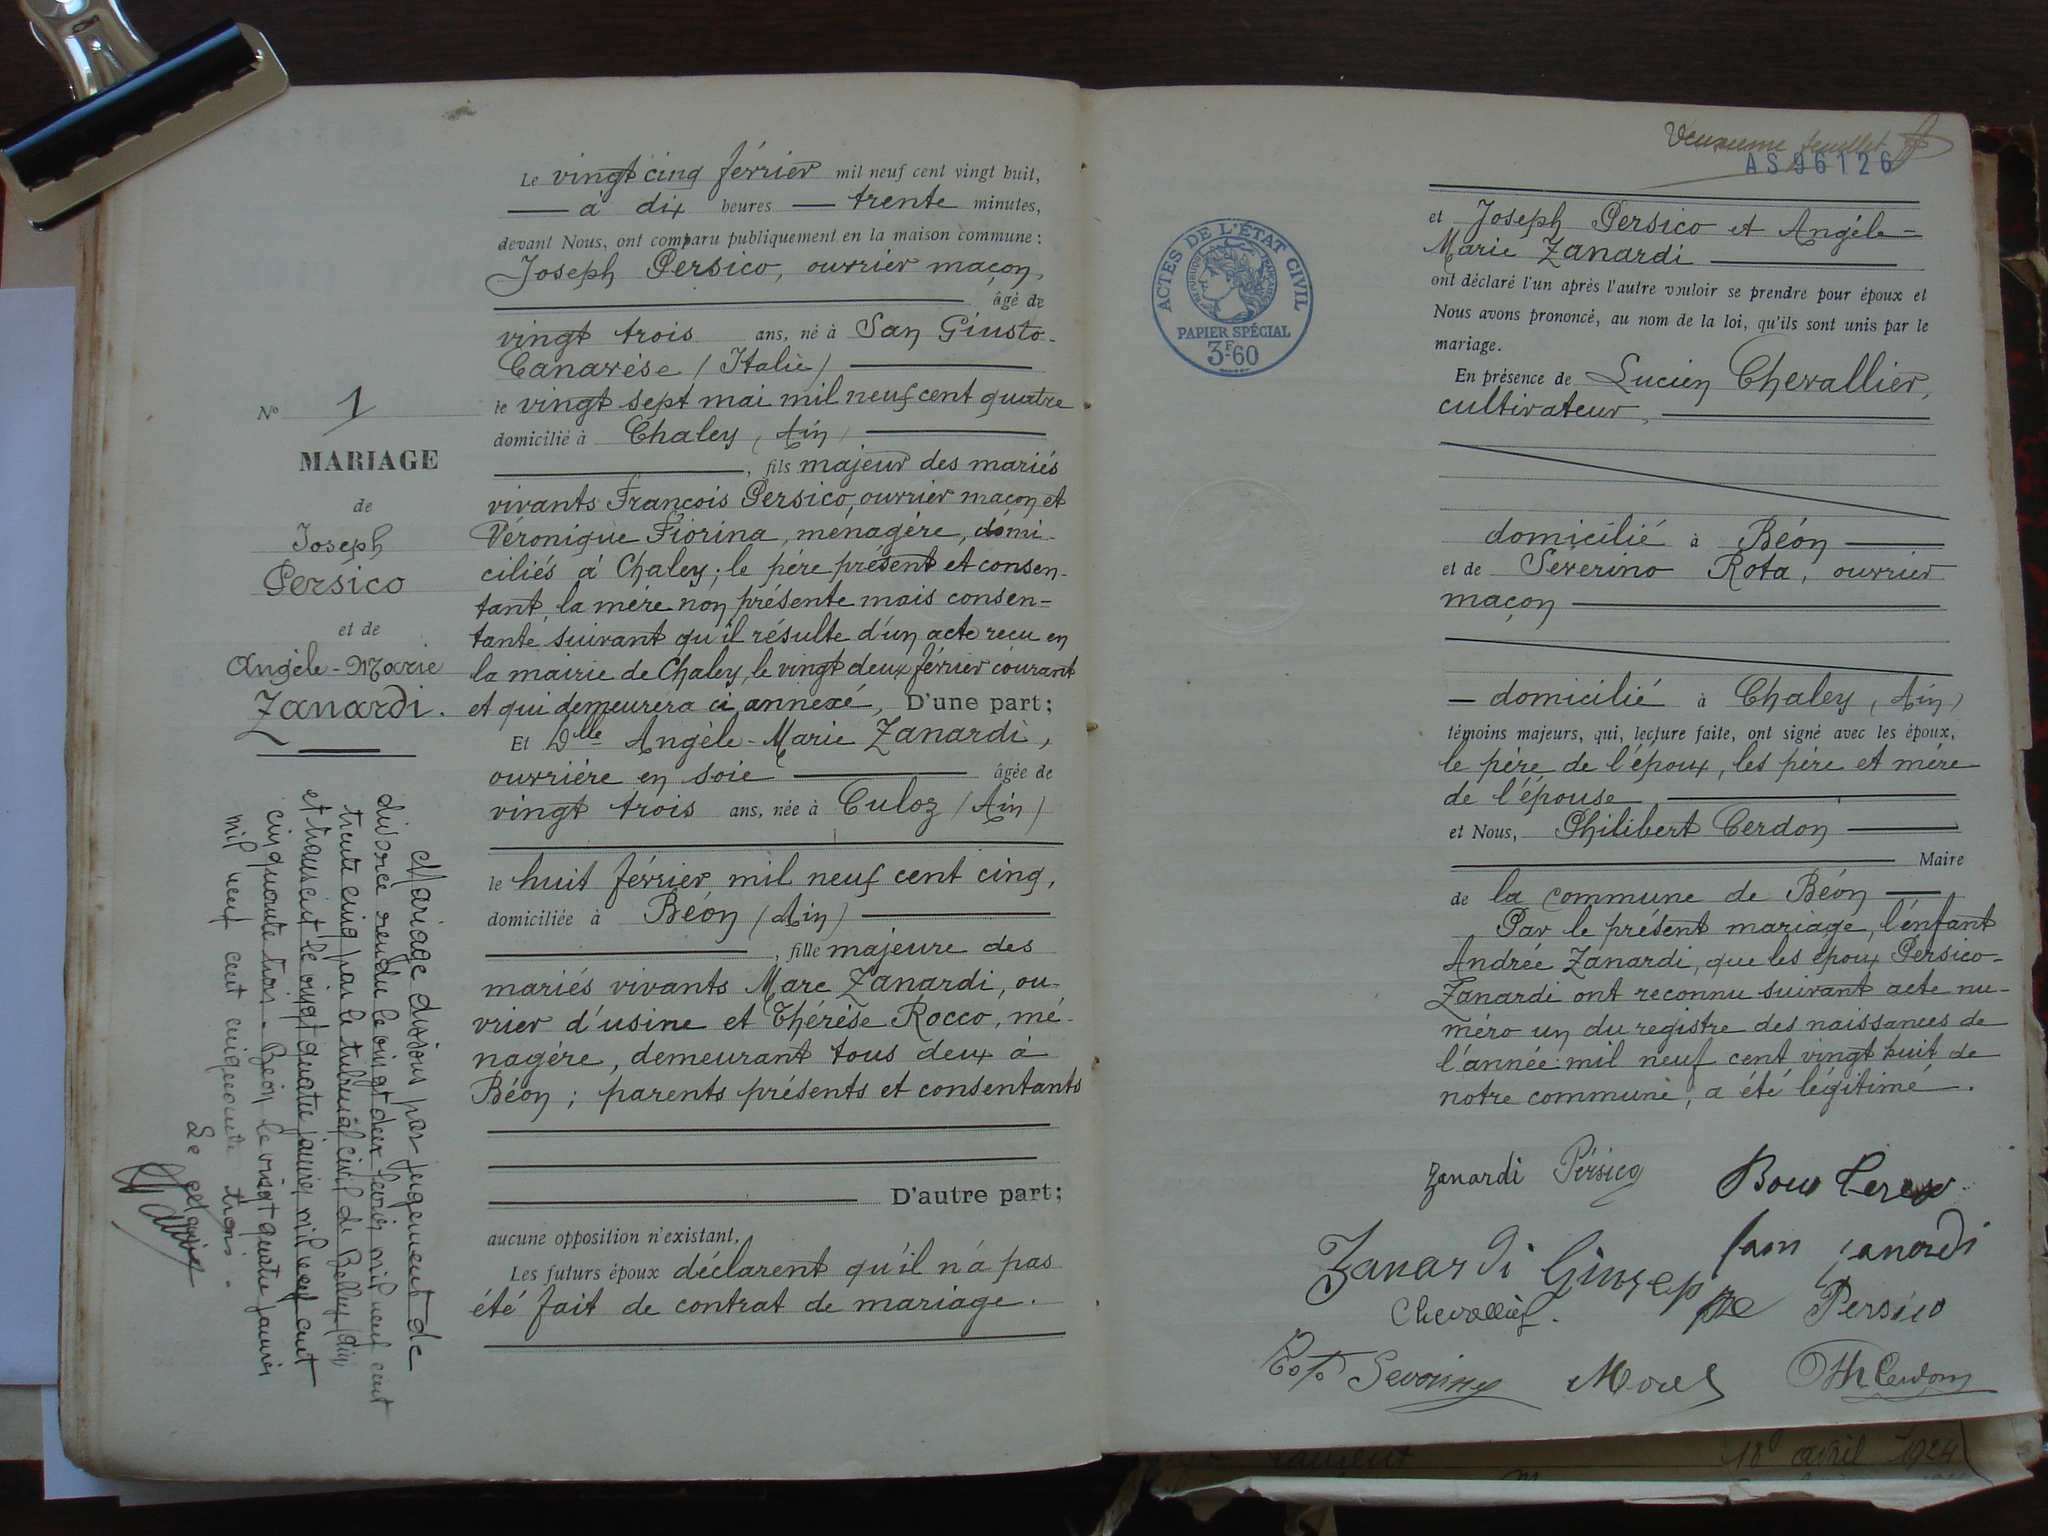 Le vingt cinq février mil neuf cent vingt huit,
à dix heures trente minutes,
devant Nous, ont comparu publiquement en la maison commune :
Joseph Persico, ouvrier maçon,
âgé de
vingt trois ans, né à San Giusto-
Canavése (Italie)
le vingt sept mai mil neuf cent quatre
domicilié à Chaley (Ain)
, fils majeur des mariés
vivants François Persico, ouvrier maçon et
Véronique Fiorina, ménagère, domi-
ciliés à Chaley ; le père présent et consen-
tant, la mère non présente mais consen-
tante suivant qu'il résulte d'un acte reçu en
la mairie de Chaley, le vingt deux février courant
et qui demeurera ci annexé, D'une part ;
Et Dlle Angèle-Marie Zanardi,
ouvrière en soie âgée de
vingt trois ans, née à Culoz (Ain)
le huit février mil neuf cent cinq,
domiciliée à Béon (Ain)
, fille majeure des
mariés vivants Marc Zanardi, ou-
vrier d'usine et Thérèse Rocco, mé-
nagère, demeurant tous deux à
Béon ; parents présents et consentants
D'autre part ;
aucune opposition n'existant.
Les futurs époux déclarent qu'il n'a pas
été fait de contrat de mariage.
No 1
MARIAGE
de
Joseph
Persico
et de
Angèle-Marie
Zanardi.
Mariage dissous par jugement de
divorce rendu le vingt deux février mil neuf cent
trente cinq par le tribunal civil de Belley (Ain)
et transcrit le vingt quatre janvier mil neuf cent
cinquante trois. Béon le vingt quatre janvier
mil neuf cent cinquante trois.
Le
feuillet
AS 96126
ACTES DE L'ÉTAT CIVIL
PAPIER SPÉCIAL
3F60
et Joseph Persico et Angèle-
Marie Zanardi
ont déclaré l'un après l'autre vouloir se prendre pour époux et
Nous avons prononcé, au nom de la loi, qu'ils sont unis par le
mariage.
En présence de Lucien Chevallier,
cultivateur,
domicilié à Béon
et de Severino Rota, ouvrier
maçon
domicilié à Chaley (Ain)
témoins majeurs, qui, lecture faite, ont signé avec les époux,
le père de l'époux, les père et mère
de l'épouse
et Nous, Philibert Cerdon
Maire
de la commune de Béon
Par le présent mariage, l'enfant
Andrée Zanardi, que les époux Persico-
Zanardi ont reconnu suivant acte nu-
méro un du registre des naissances de
l'année mil neuf cent vingt huit de
notre commune, a été légitimé.
Zanardi Persico
Zanardi Giuseppe
Chevallier. Persico
Rota Severino Cerdon
18 avril 1924